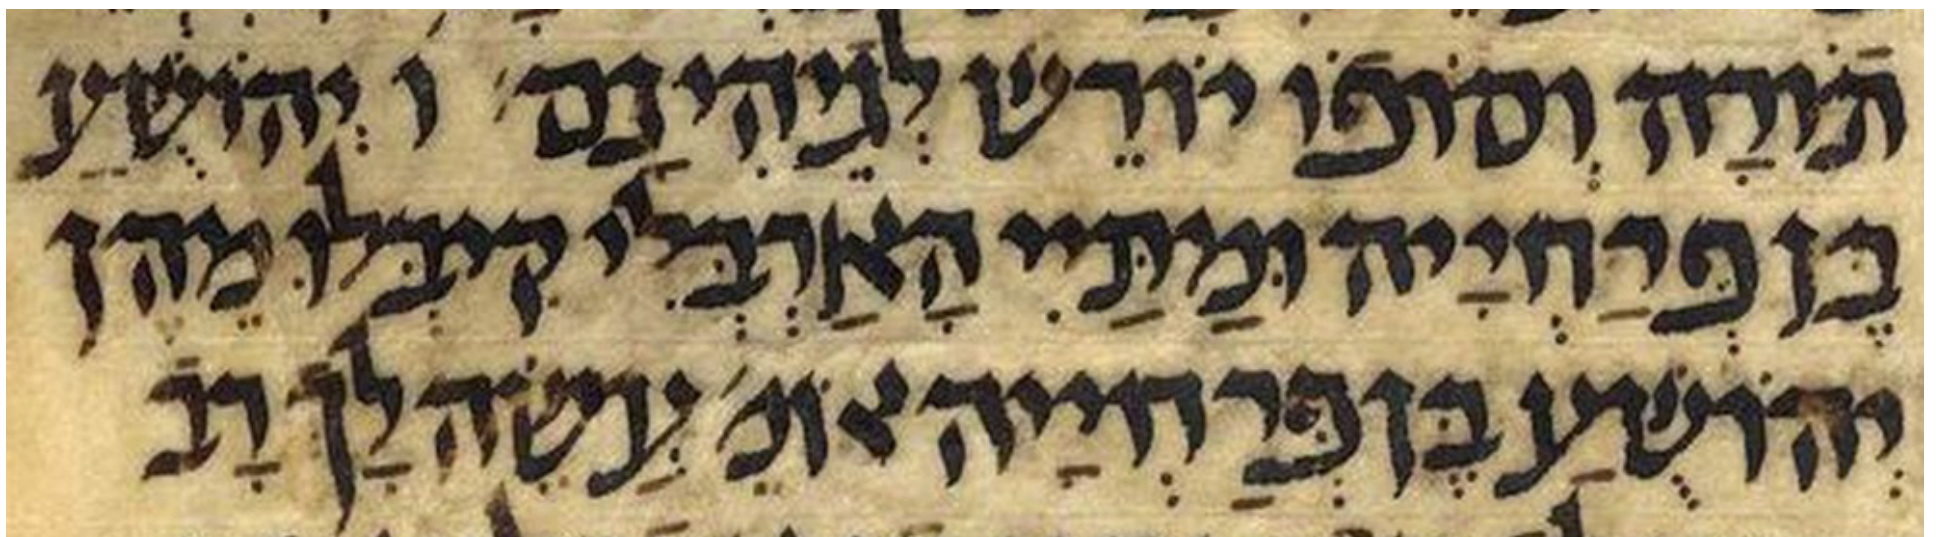 תּוֹרָה וְסוֹפוֹ יוֹרֵשׁ לְגֵיהִינָּם ו יְהוֹשֻׁעַ
בֶּן פְּרַחְיַיה וּמַתַּיִי הָאַרְבְּלִי קִיבְּלוּ מֵהֶן
יְהוֹשֻׁעַ בֶּן פְּרַחְיַיה אוֹמֵ' עֲשֵׂה לָךְ רָב